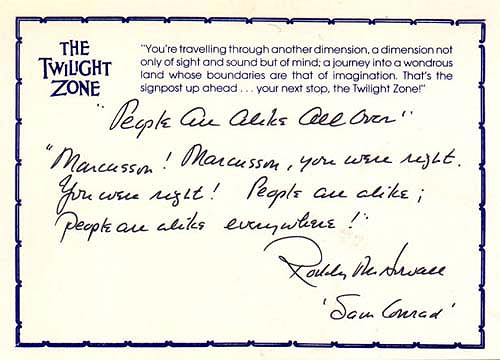 THE
TWILIGHT
ZONE
"You're travelling through another dimension, a dimension not
only of sight and sound but of mind; a journey into a wondrous
land whose boundaries are that of imagination. That's the
signpost up ahead . . . your next stop, the Twilight Zone!"
"People Are Alike All Over"
"Marcusson! Marcusson, you were right.
You were right! People are alike;
people are alike everywhere!"
Roddy McDowall
'Sam Conrad'